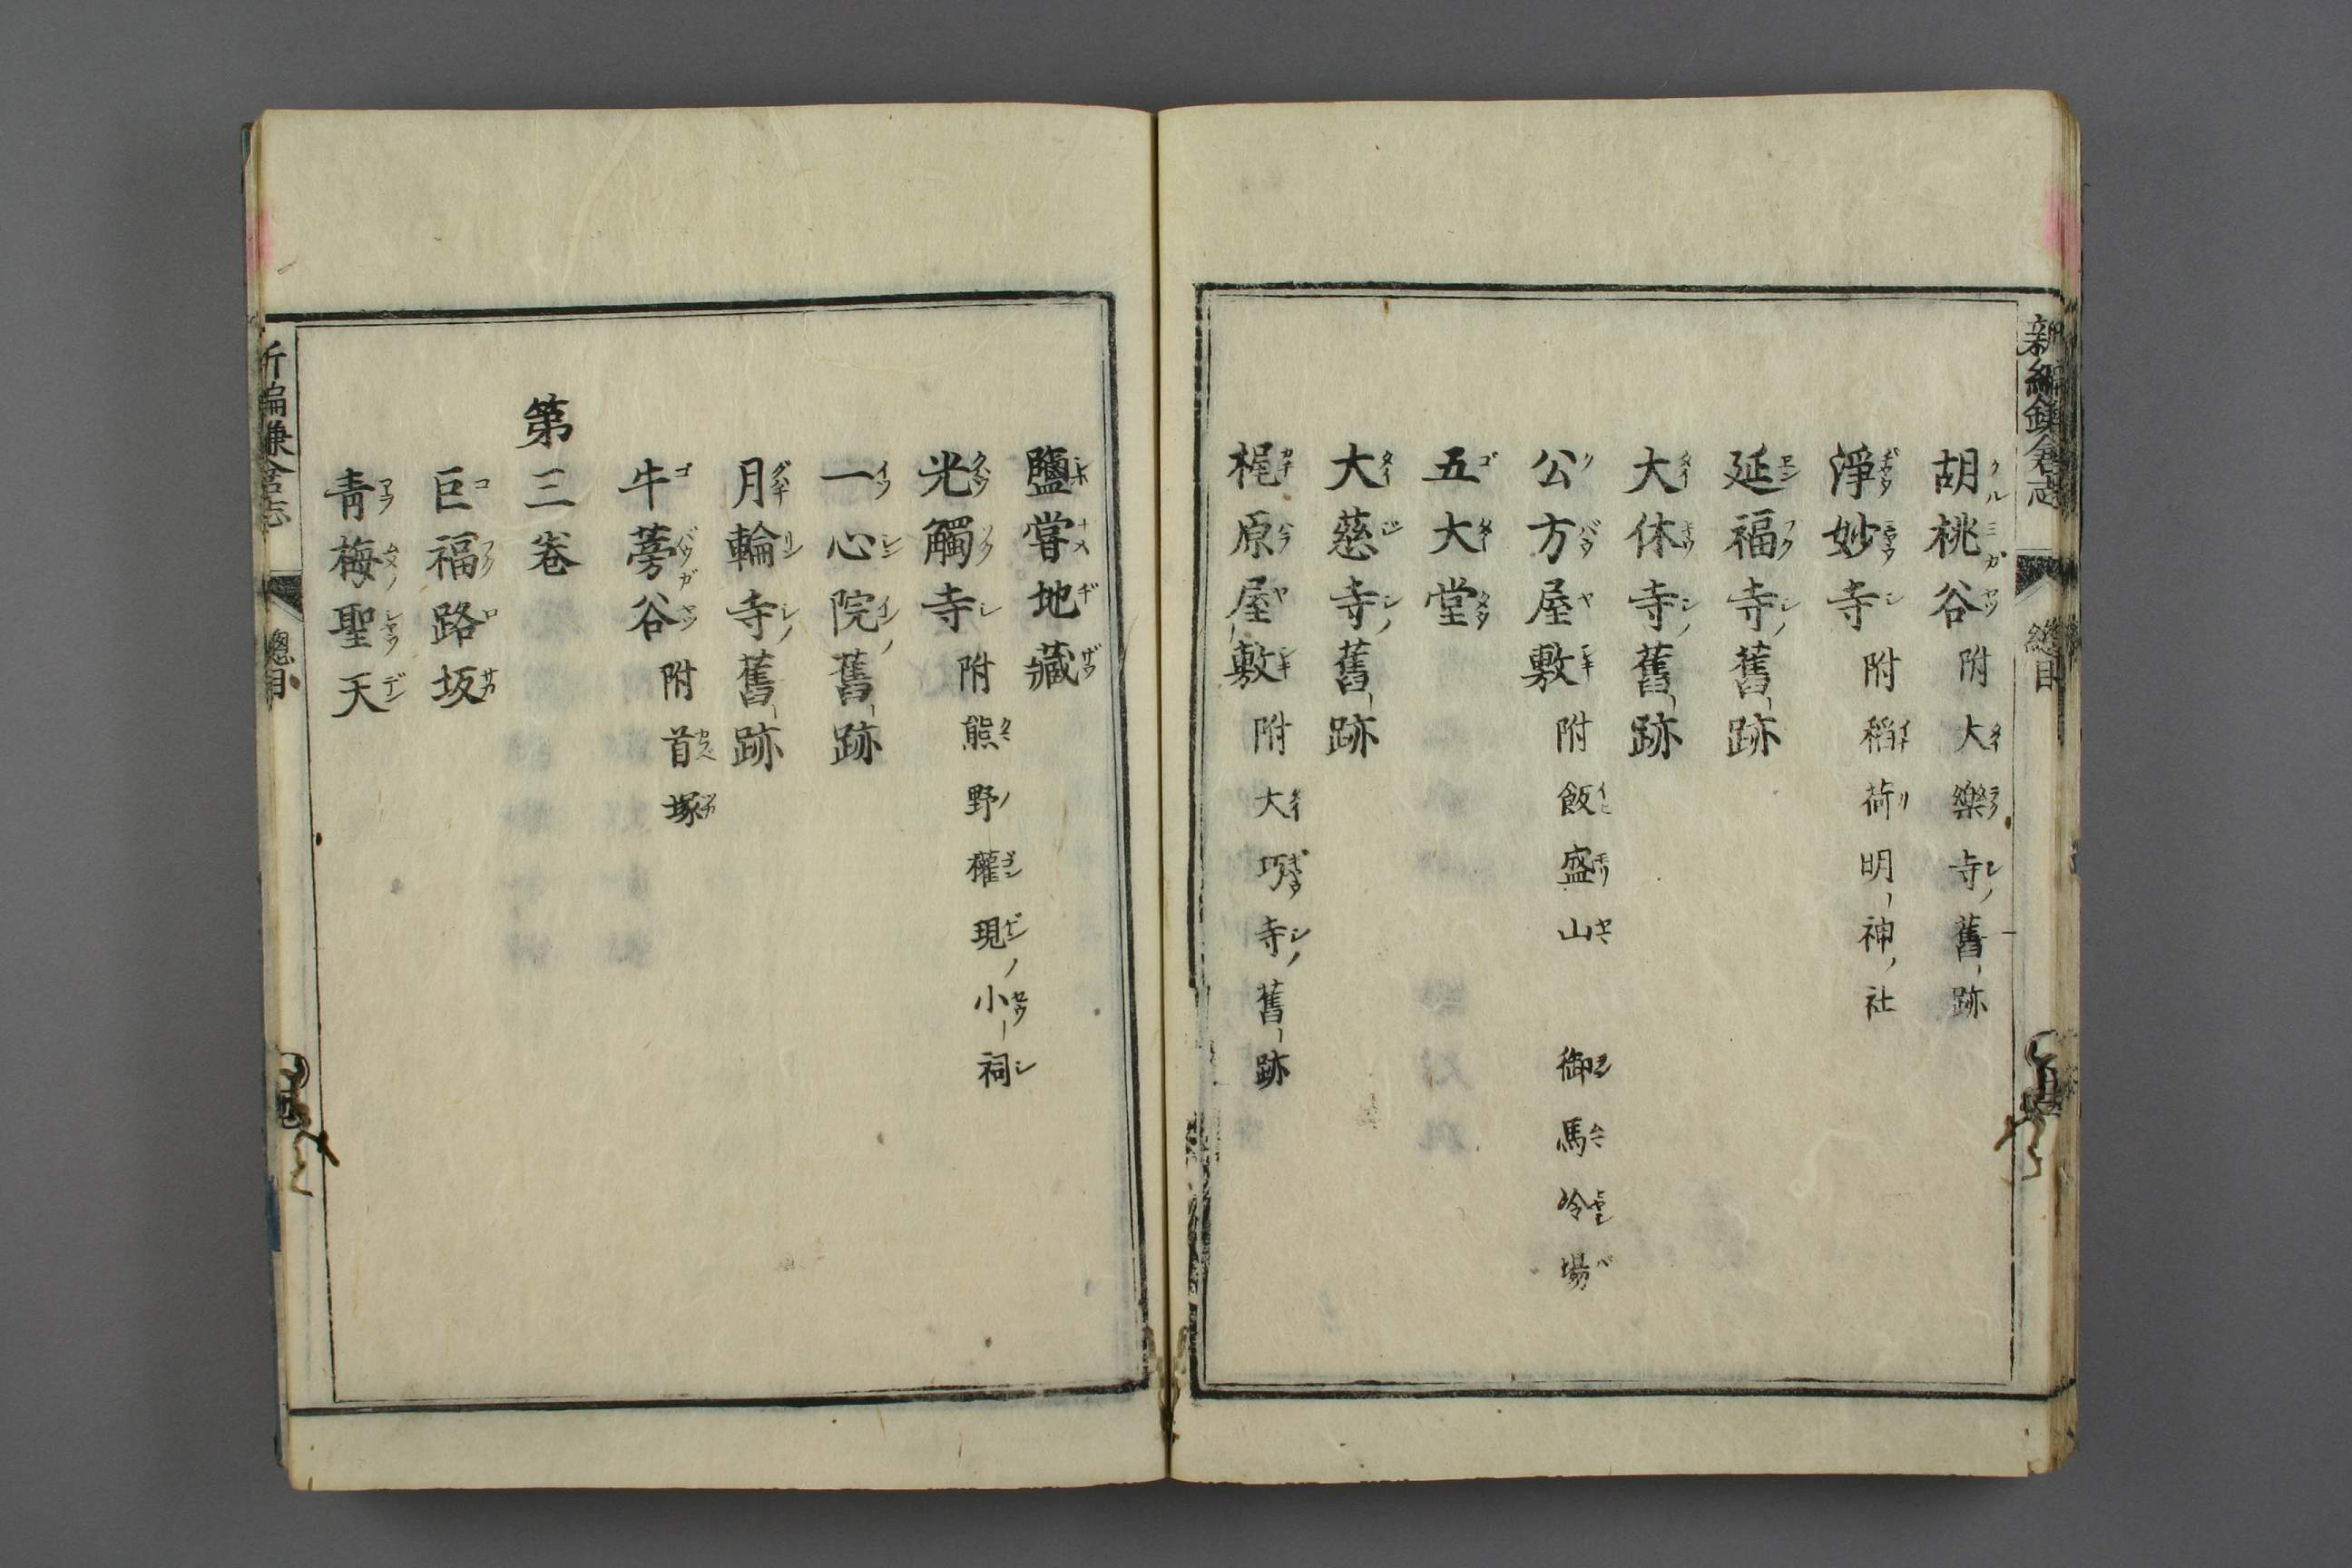 新編鎌倉志　總目
胡桃谷　附大樂寺ノ舊跡
淨妙寺　附稻荷明神ノ社
延福寺ノ舊跡
大休寺ノ舊跡
公方屋敷　附飯盛山　御馬冷場
五大堂
大慈寺ノ舊跡
梶原屋敷　附大巧寺ノ舊跡
鹽嘗地藏
光觸寺　附熊野權現ノ小祠
一心院ノ舊跡
月輪寺ノ舊跡
牛蒡谷　附首塚
第三巻
巨福路坂
青梅聖天
新編鎌倉志　總目